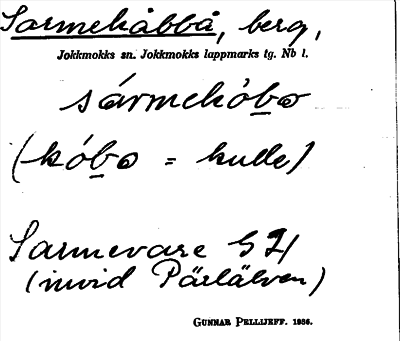 Sarmekåbbå, berg,
Jokkmokks sn. Jokkmokks lappmarks tg. Nb l.
sármekȯb̲o
(kȯb̲o = kulle)
Sarmevare GJ
(invid Pärlälven)
GUNNAR PELLIJEFF. 1956.